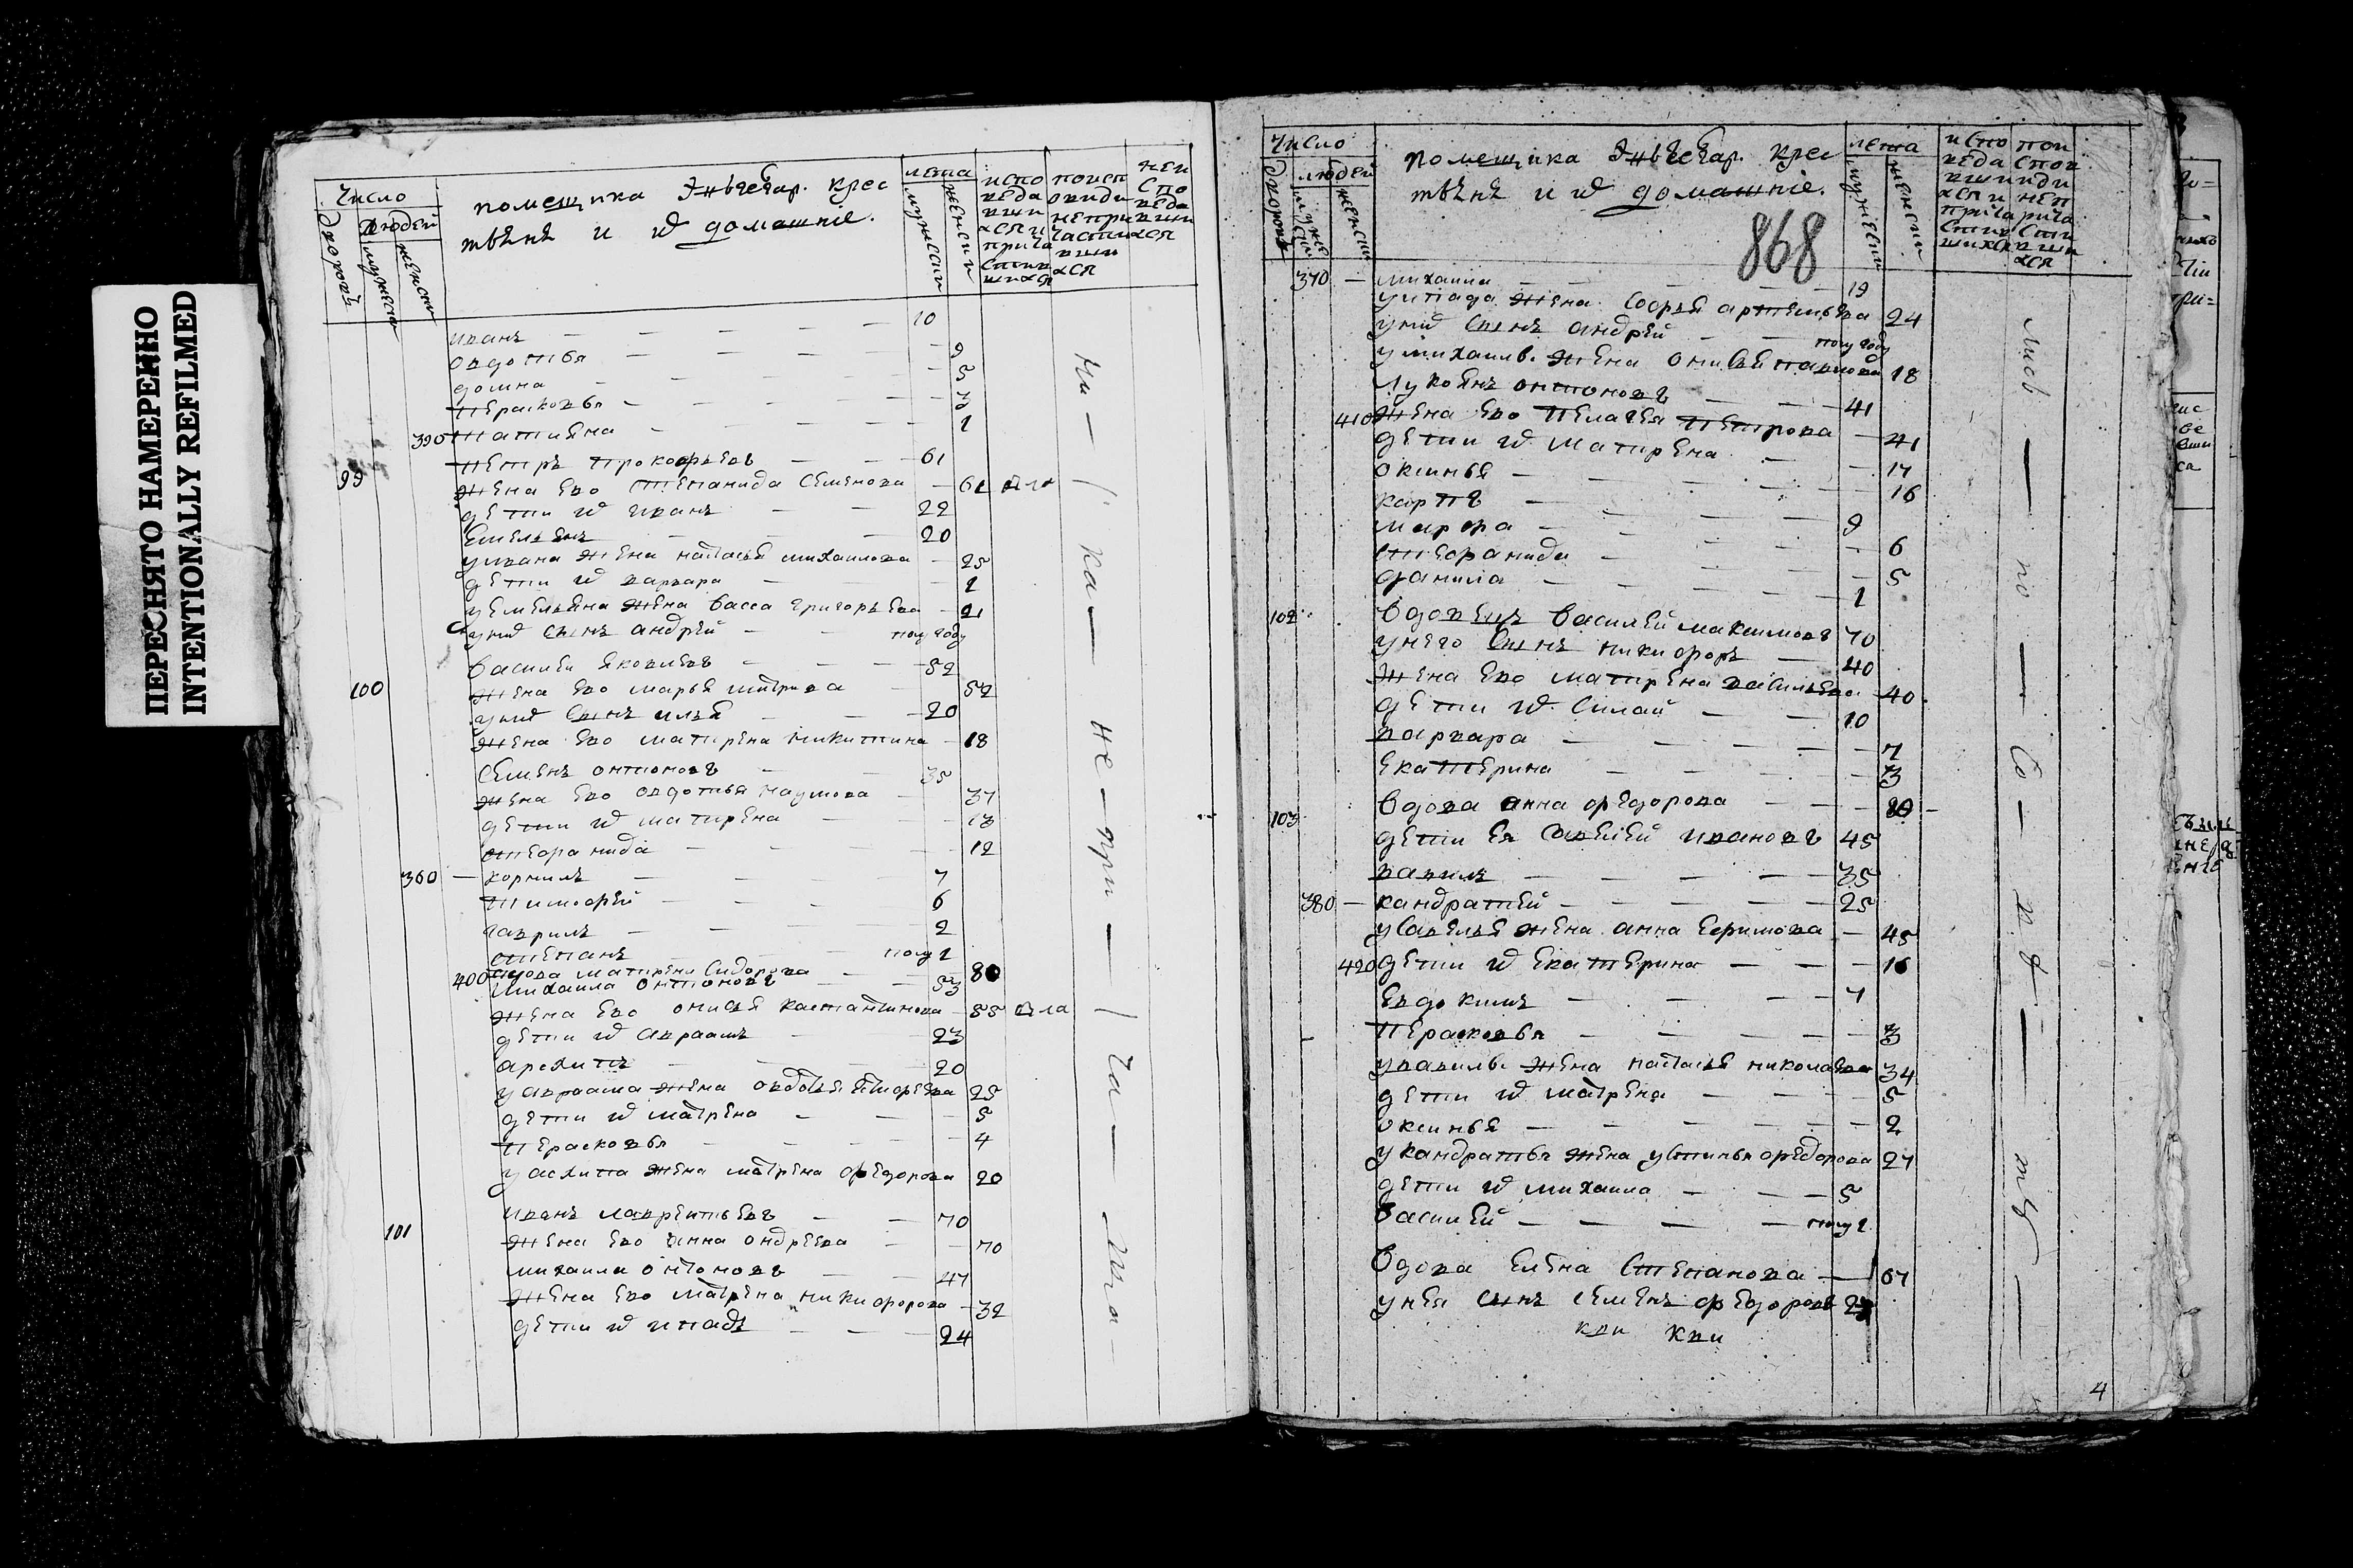 ПЕРЕСНЯТО НАМЕРЕННО
INTENTIONALLY REFILMED
Число
дворовъ
людей
мужеска
женска
помещика крес
тьянѣ и иⷯ домашніе.
лета
мужески
женски
испо
веда
вши
хся и
прича
стив
шихся
поисп
овиди
непри
части
вши
хся
неи
спо
веда
вши
хся
иванъ 10
овдотья 9
домна 5
перасковья 3
390 татияна 1
99 петръ прокофьевъ 61
жена ево степанида семенова 61 для
дети иⷯ иванъ 22
емельянъ 20
у ивана жена наталья михаилова 25
дети иⷯ варвара 1
у емельяна жена васса григорьева 21
у ниⷯ сынъ андрей полугоду
100 василеи яковлевъ 52
жена ево марья митрива 52
у ниⷯ сынъ илья 20
жена ево матрена никитина 18
семенъ онтоновъ 35
жена ево овдотья наумова 37
дети иⷯ матрена 13
стефанида 12
360 корнилъ 7
тимофей 6
гаврилъ 2
степанъ полу г
400 вдова матрена сидорова 80
михаила онтоновъ 53
жена ево онисья кастантинова 55 для
дети иⷯ авраамъ 23
архипъ 20
у авраама жена овдотья 25
дети иⷯ матрена 5
перасковья 4
у архипа жена матрена федорова 20
101 иванъ лаврентьевъ 70
жена ево анна ондреева 70
михаила онтоновъ 47
жена ево матрена никифорова 32
дети иⷯ ипатъ 24
ни — ка — не — при — ча — ли —
Число
дворовъ
людей
мужес
ски
женски
помещика крес
тьянѣ и иⷯ домашніе.
868
лета
мужески
женски
испо
веда
вши
хся и
прича
стив
шихся
пои
спов
иди
неп
рича
сти
вши
хся
370 михаила 19
у ипата жена софья артемьева 24
у ниⷯ сынъ андрей полугоду
у михаилы жена онисья павлова 18
лукоянъ онтоновъ 41
410 жена ево пелагея петрова 41
дети иⷯ матрена 17
оксинья 16
карпъ 9
марфа 6
стефанида 5
данила 1
102 вдовецъ василей максимовъ 70
у него сынъ никифоръ 40
жена ево матрена васильева 40
дети иⷯ силаи 10
варвара 7
екатерина 3
103 вдова анна федорова 80
дети ея савелей ивановъ 45
вавилъ 35
380 кандратей 25
у савелья жена анна ефимова 45
420 дети иⷯ екатерина 16
евдокимъ 7
перасковья 3
у вавилы жена наталья николаева 34
дети иⷯ матрена 5
оксинья 2
у кандратья жена устинья федорова 27
дети иⷯ михаила 5
василей полу г
вдова елена степанова 67
у нея сынъ семенъ федоровъ 23
4